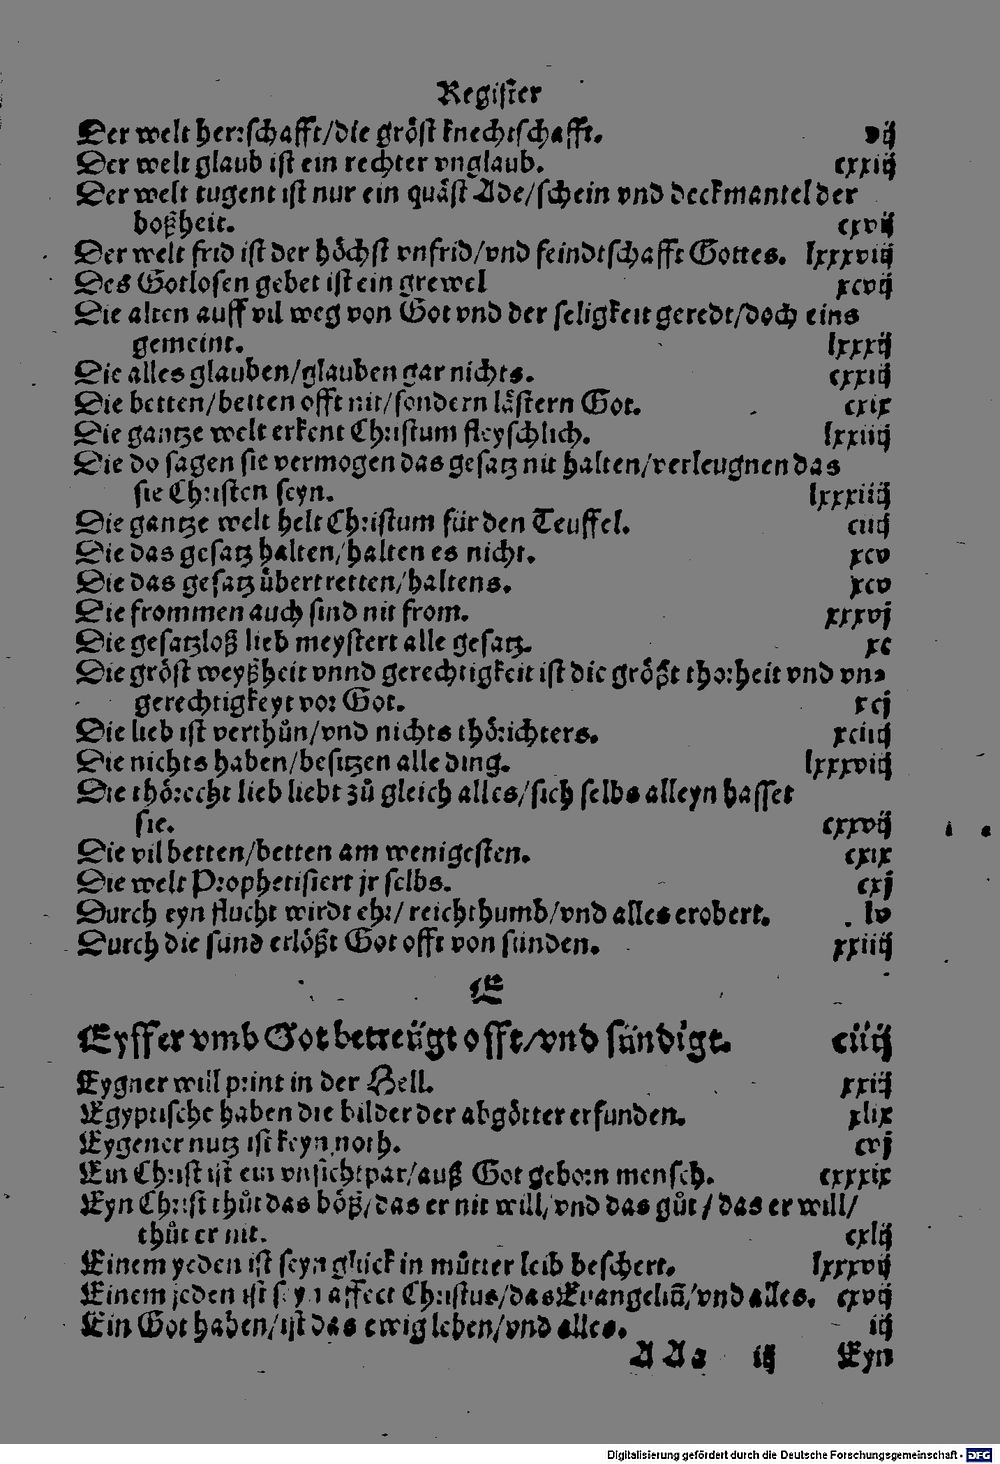 Register
Der welt herrschafft/die gröst knechtschafft. vij
Der welt glaub ist ein rechter vnglaub. cxxiij
Der welt tugent ist nur ein quäst Ade/schein vnd deckmantel der
boßheit. cxvij
Der welt frid ist der höchst vnfrid/vnd feindtschafft Gottes. lxxxviij
Des Gotlosen gebet ist ein grewel xcvij
Die alten auff vil weg von Got vnd der seligkeit geredt/doch eins
gemeint. lxxxij
Die alles glauben/glauben gar nichts. cxxiij
Die betten/betten offt nit/sondern lästern Got. cxix
Die gantze welt erkent Christum fleyschlich. lxxiiij
Die do sagen sie vermogen das gesatz nit halten/verleugnen das
sie Christen seyn. lxxxiiij
Die gantze welt helt Christum für den Teuffel. ciiij
Die das gesatz halten/halten es nicht. xcv
Die das gesatz übertretten/haltens. xcv
Die frommen auch sind nit from. xxxvj
Die gesatzloß lieb meystert alle gesatz. xc
Die gröst weyßheit vnnd gerechtigkeit ist die gröst thorheit vnd vn⸗
gerechtigkeyt vor Got. xcj
Die lieb ist verthůn/vnd nichts thörichters. xciiij
Die nichts haben/besitzen alle ding. lxxxviij
Die thörecht lieb liebt zů gleich alles/sich selbs alleyn hasset
sie. cxxvij
Die vil betten/betten am wenigesten. cxix
Die welt Prophetisiert jr selbs. cxj
Durch eyn flucht wirdt ehr/ reichthumb/vnd alles erobert. lv
Durch die sünd erlößt Got offt von sünden. xxiiij
E
Eyffer vmb Got betreügt offt/vnd sündigt. ciiij
Eygner will print in der Hell. xxij
Egyptische haben die bilder der abgötter erfunden. xlix
Eygener nutz ist keyn noth. cvj
Ein Christ ist ein vnsichtpar/auß Got geborn mensch. cxxxix
Eyn Christ thůt das böß/das er nit will/vnd das gůt/das er will/
thůt er nit. cxlij
Einem yeden ist seyn glück in můtter leib beschert. lxxxvij
Einem jeden ist seyn affect Christus/das Euangeliū/vnd alles. cxvij
Ein Got haben/ist das ewig leben/vnd alles. iij
A A a iij Eyn
Digitalisierung gefördert durch die Deutsche Forschungsgemeinschaft - DFG